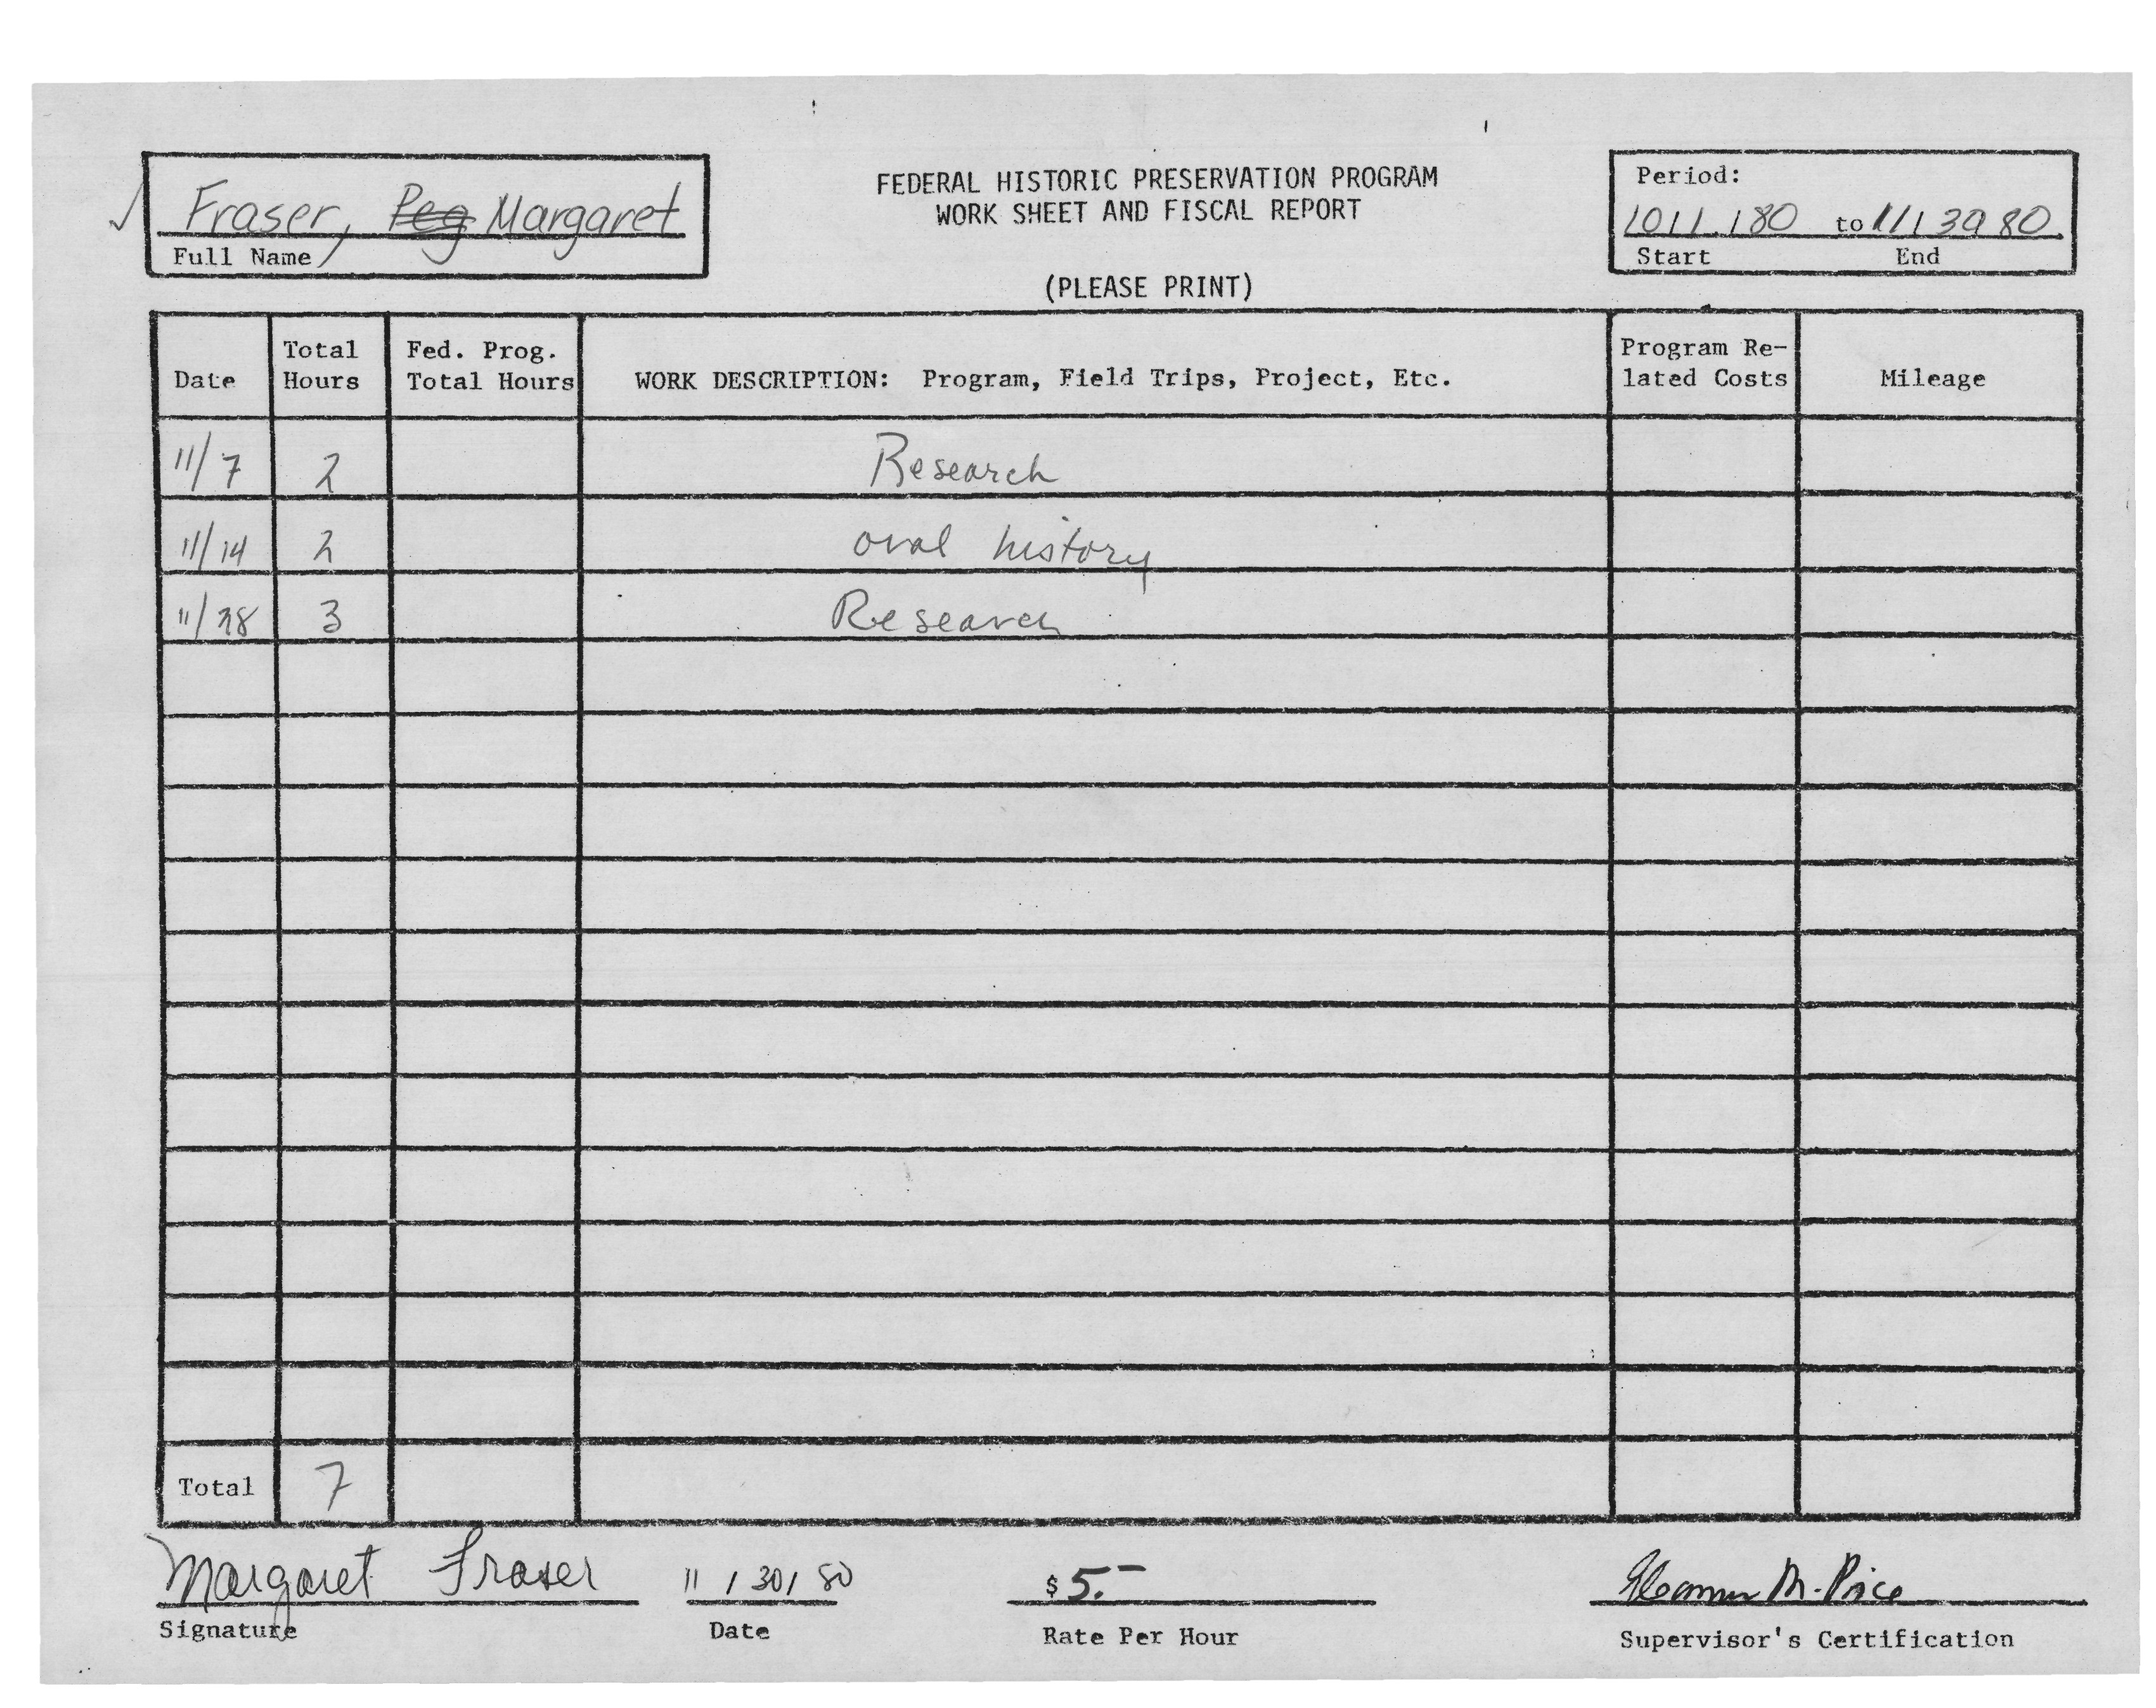 FEDERAL HISTORIC PRESERVATION PROGRAM
WORK SHEET AND FISCAL REPORT
(PLEASE PRINT)
Fraser, Peg Margaret
Full Name
Period:
10/1/80 to 11/30/80
Start End
Date Total Hours Fed. Prog. Total Hours WORK DESCRIPTION: Program, Field Trips, Project, Etc. Program Re-lated Costs Mileage
11/7 2 Research
11/14 2 oral history
11/28 3 Research
Total 7
Margaret Fraser 11/30/80 $5.- Eleanor M. Price
Signature Date Rate Per Hour Supervisor's Certification